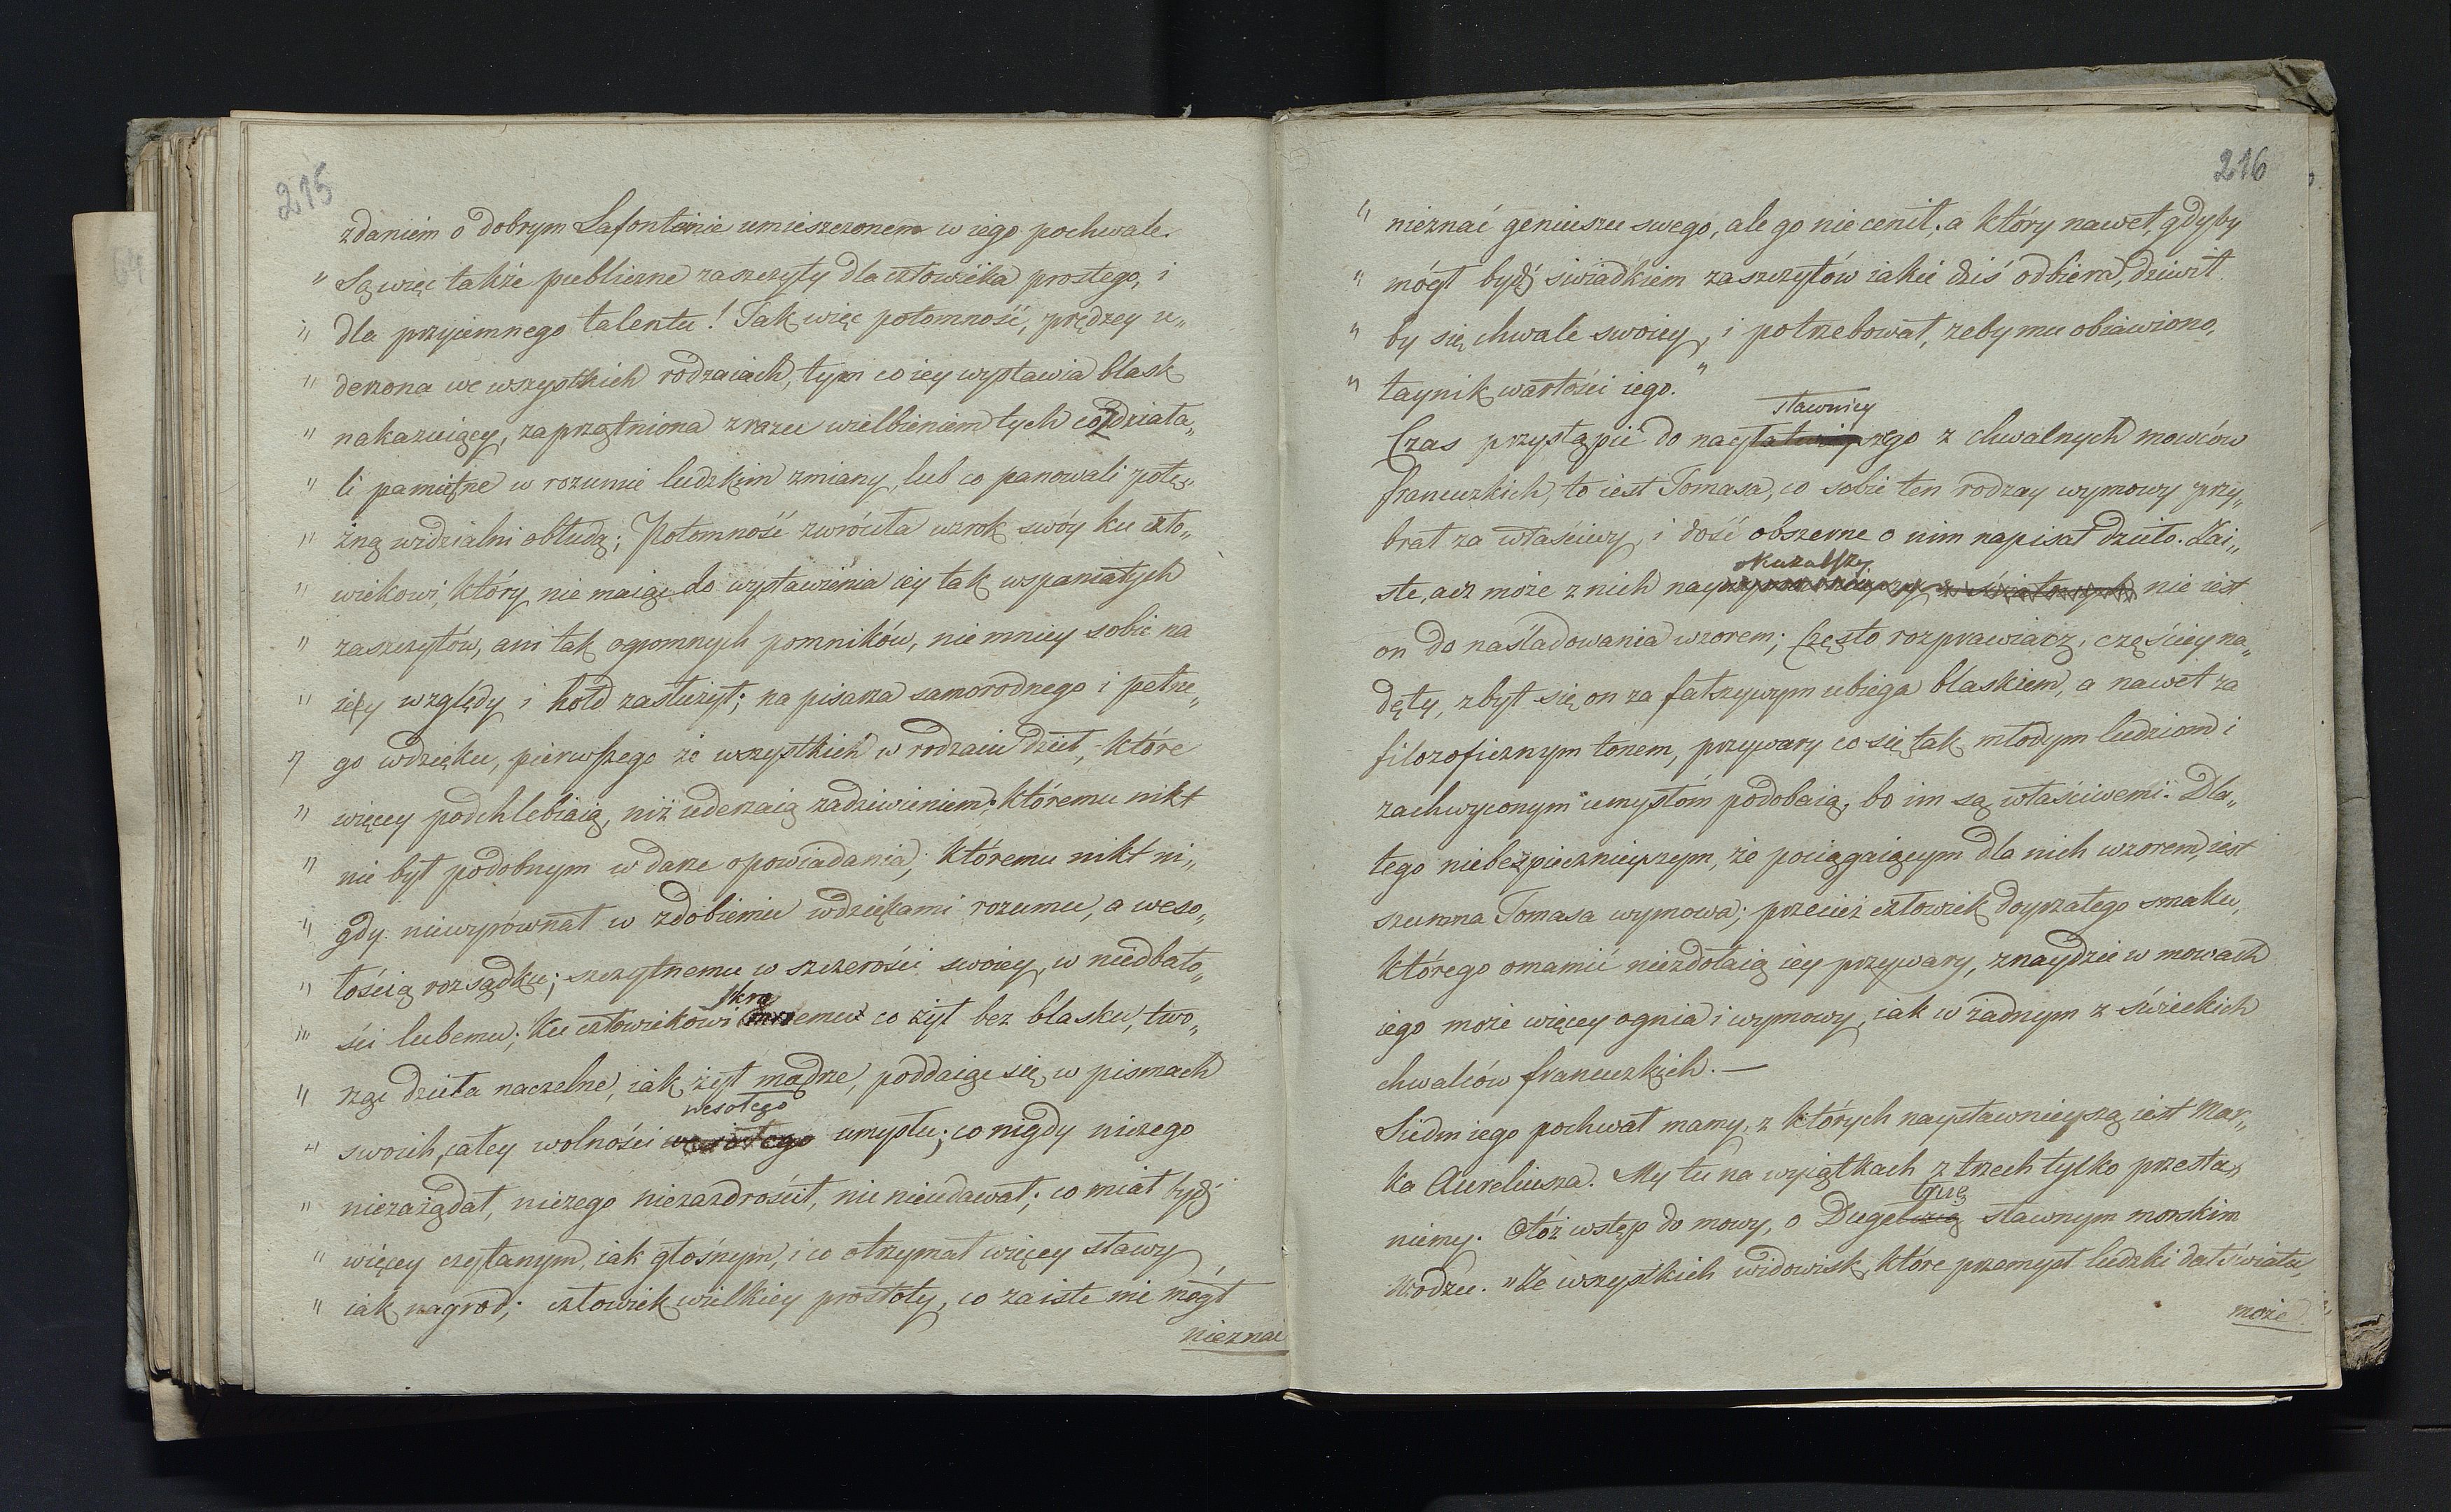 215
zdaniem o dobrym Lafontenie umieszczonem w iego pochwale.
" Są więc także publiczne zaszczyty dla człowieka prostego, i
" dla przyiemnego talentu! Tak więc potomność, prędzey u„
" derzona we wszystkich rodzaiach, tym co iey wystawia blask
" nakazuiący, zaprzątniona zrazu wielbieniem tych co zdziała„
" li pamiętne w rozumie ludzkim zmiany, lub co panowali potę„
" żną widzialni obłudą; Potomność zwróciła wzrok swóy ku czło„
" wiekowi, który nie maiąc do wystawienia iey tak wspaniałych
" zaszczytów, ani tak ogromnych pomników, nie mniey sobie na
" iey względy i hołd zasłużył; na pisarza samorodnego i pełne„
" go wdzięku, pierwszego ze wszystkich w rodzaiu dzieł, które
" więcey podchlebiaią, niż uderzaią zadziwieniem; któremu nikt
" nie był podobnym w darze opowiadania; któremu nikt ni„
" gdy niewyrównał w zdobieniu wdziękami rozumu, a weso„
" łością rozsądku; szczytnemu w szczerości swoiey, w niedbało„
" ści lubemu; ku człowiekowi skromnemu co żył bez blasku, two„
" rząc dzieła naczelne, iak żył mądrze, poddaiąc się w pismach
" swoich, całey wolności wesołego umysłu; co nigdy niczego
" niezażądał, niczego niezazdrościł, nic nieudawał; co miał bydź
" więcey czytanym, iak głośnym, i co otrzymał więcey sławy,
" iak nagrod; człowiek wielkiey prostoty, co zaiste nie mógł
nieznać
216
" nieznać geniuszu swego, ale go nie cenił; a który nawet, gdyby
" mógł bydź świadkiem zaszczytów iakie dziś odbiera, dziwił
" by się chwale swoiey, i potrzebował, żeby mu obiawiono,
" taynik wartości iego."
sławniey
Czas przystąpić do nayszego z chwalnych mowców
francuzkich, to iest Tomasa, co sobie ten rodzay wymowy przy„
brał za właściwy, i dość obszerne o nim napisał dzieło. Zai„
okazalszy
ste, acz może z nich nay nie iest
on do naśladowania wzorem; Często rozprawiacz, częściey na„
dęty, zbyt się on za fałszywym ubiega blaskiem, a nawet za
filozoficznym tonem, przywary co się tak młodym ludziom i
zachwyconym umysłóm podobaią, bo im są właściwemi. Dla„
tego niebezpiecznieyszym, że pociągaiącym dla nich wzorem, iest
szumna Tomasa wymowa; przecież człowiek doyrzałego smaku,
którego omamić niezdołaią iey przywary, znaydzie w mowach
iego może więcey ognia i wymowy, iak w żadnym z świeckich
chwalców francuzkich. —
Siedm iego pochwał mamy, z których naysławnieyszą iest Mar„
ka Aureliusza. My tu na wyiątkach z trzech tylko przesta„
niemy. Otóż wstęp do mowy, o Dugetruę sławnym morskim
wodzu. "Ze wszystkich widowisk, które przemysł ludzki dał światu,
może